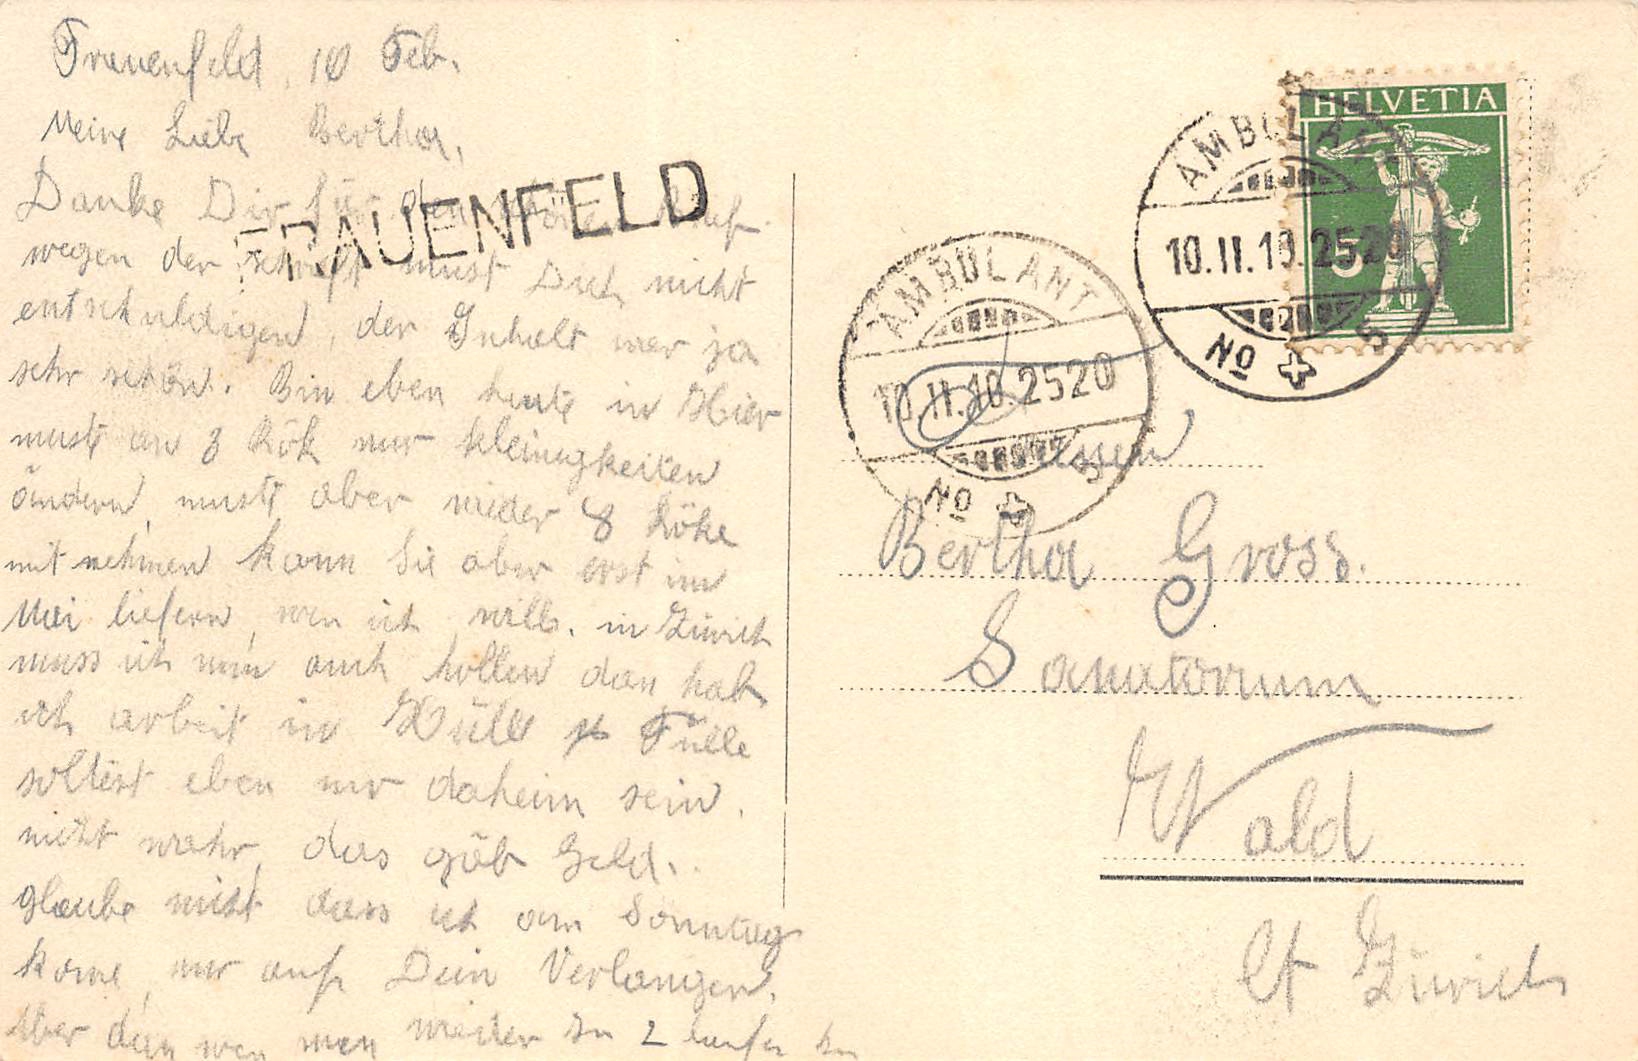 Frauenfeld, 10 Feb.
Meine Liebe Bertha,
Danke Dir für den schönen
wegen der schrift must Dich nicht
entschuldigen, der Inhalt war ja
sehr schön. Bin eben heute in Hier
muste an 8 Rök nur kleinigkeiten
ändern, muste aber wieder 8 Röke
mit nehmen kann Sie aber erst im
Mai liefern, wen ich will. in Zürich
muss ich nun auch hollen dan hab
ich arbeit in Hüll Fülle
soltest eben nur daheim sein,
nicht wahr, das gäb Geld.
glaube nicht dass ich am Sonntag
kome, nur auf Dein Verlangen,
Aber dan wen man wieder zu 2 laufen
FRAUENFELD
HELVETIA
5
AMBULANT
10.II.19.2520
No 5
AMBULANT
10.II.10.2520
No 5
Bertha Gross.
Sanatorium
Wald
Ct Zürich